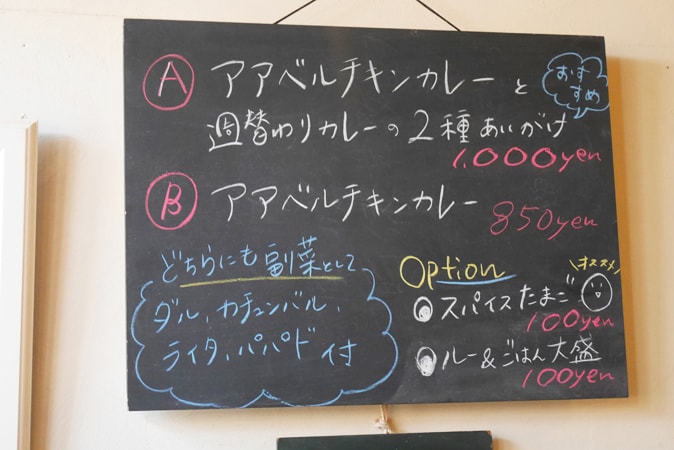 A アアベルチキンカレーと
おすすめ
週替わりカレーの2種あいがけ
1,000yen
B アアベルチキンカレー 850yen
どちらにも副菜として
ダル、カチュンバル、
ライタ、パパド付
Option
オススメ
スパイスたまご
100yen
ルー&ごはん大盛
100yen